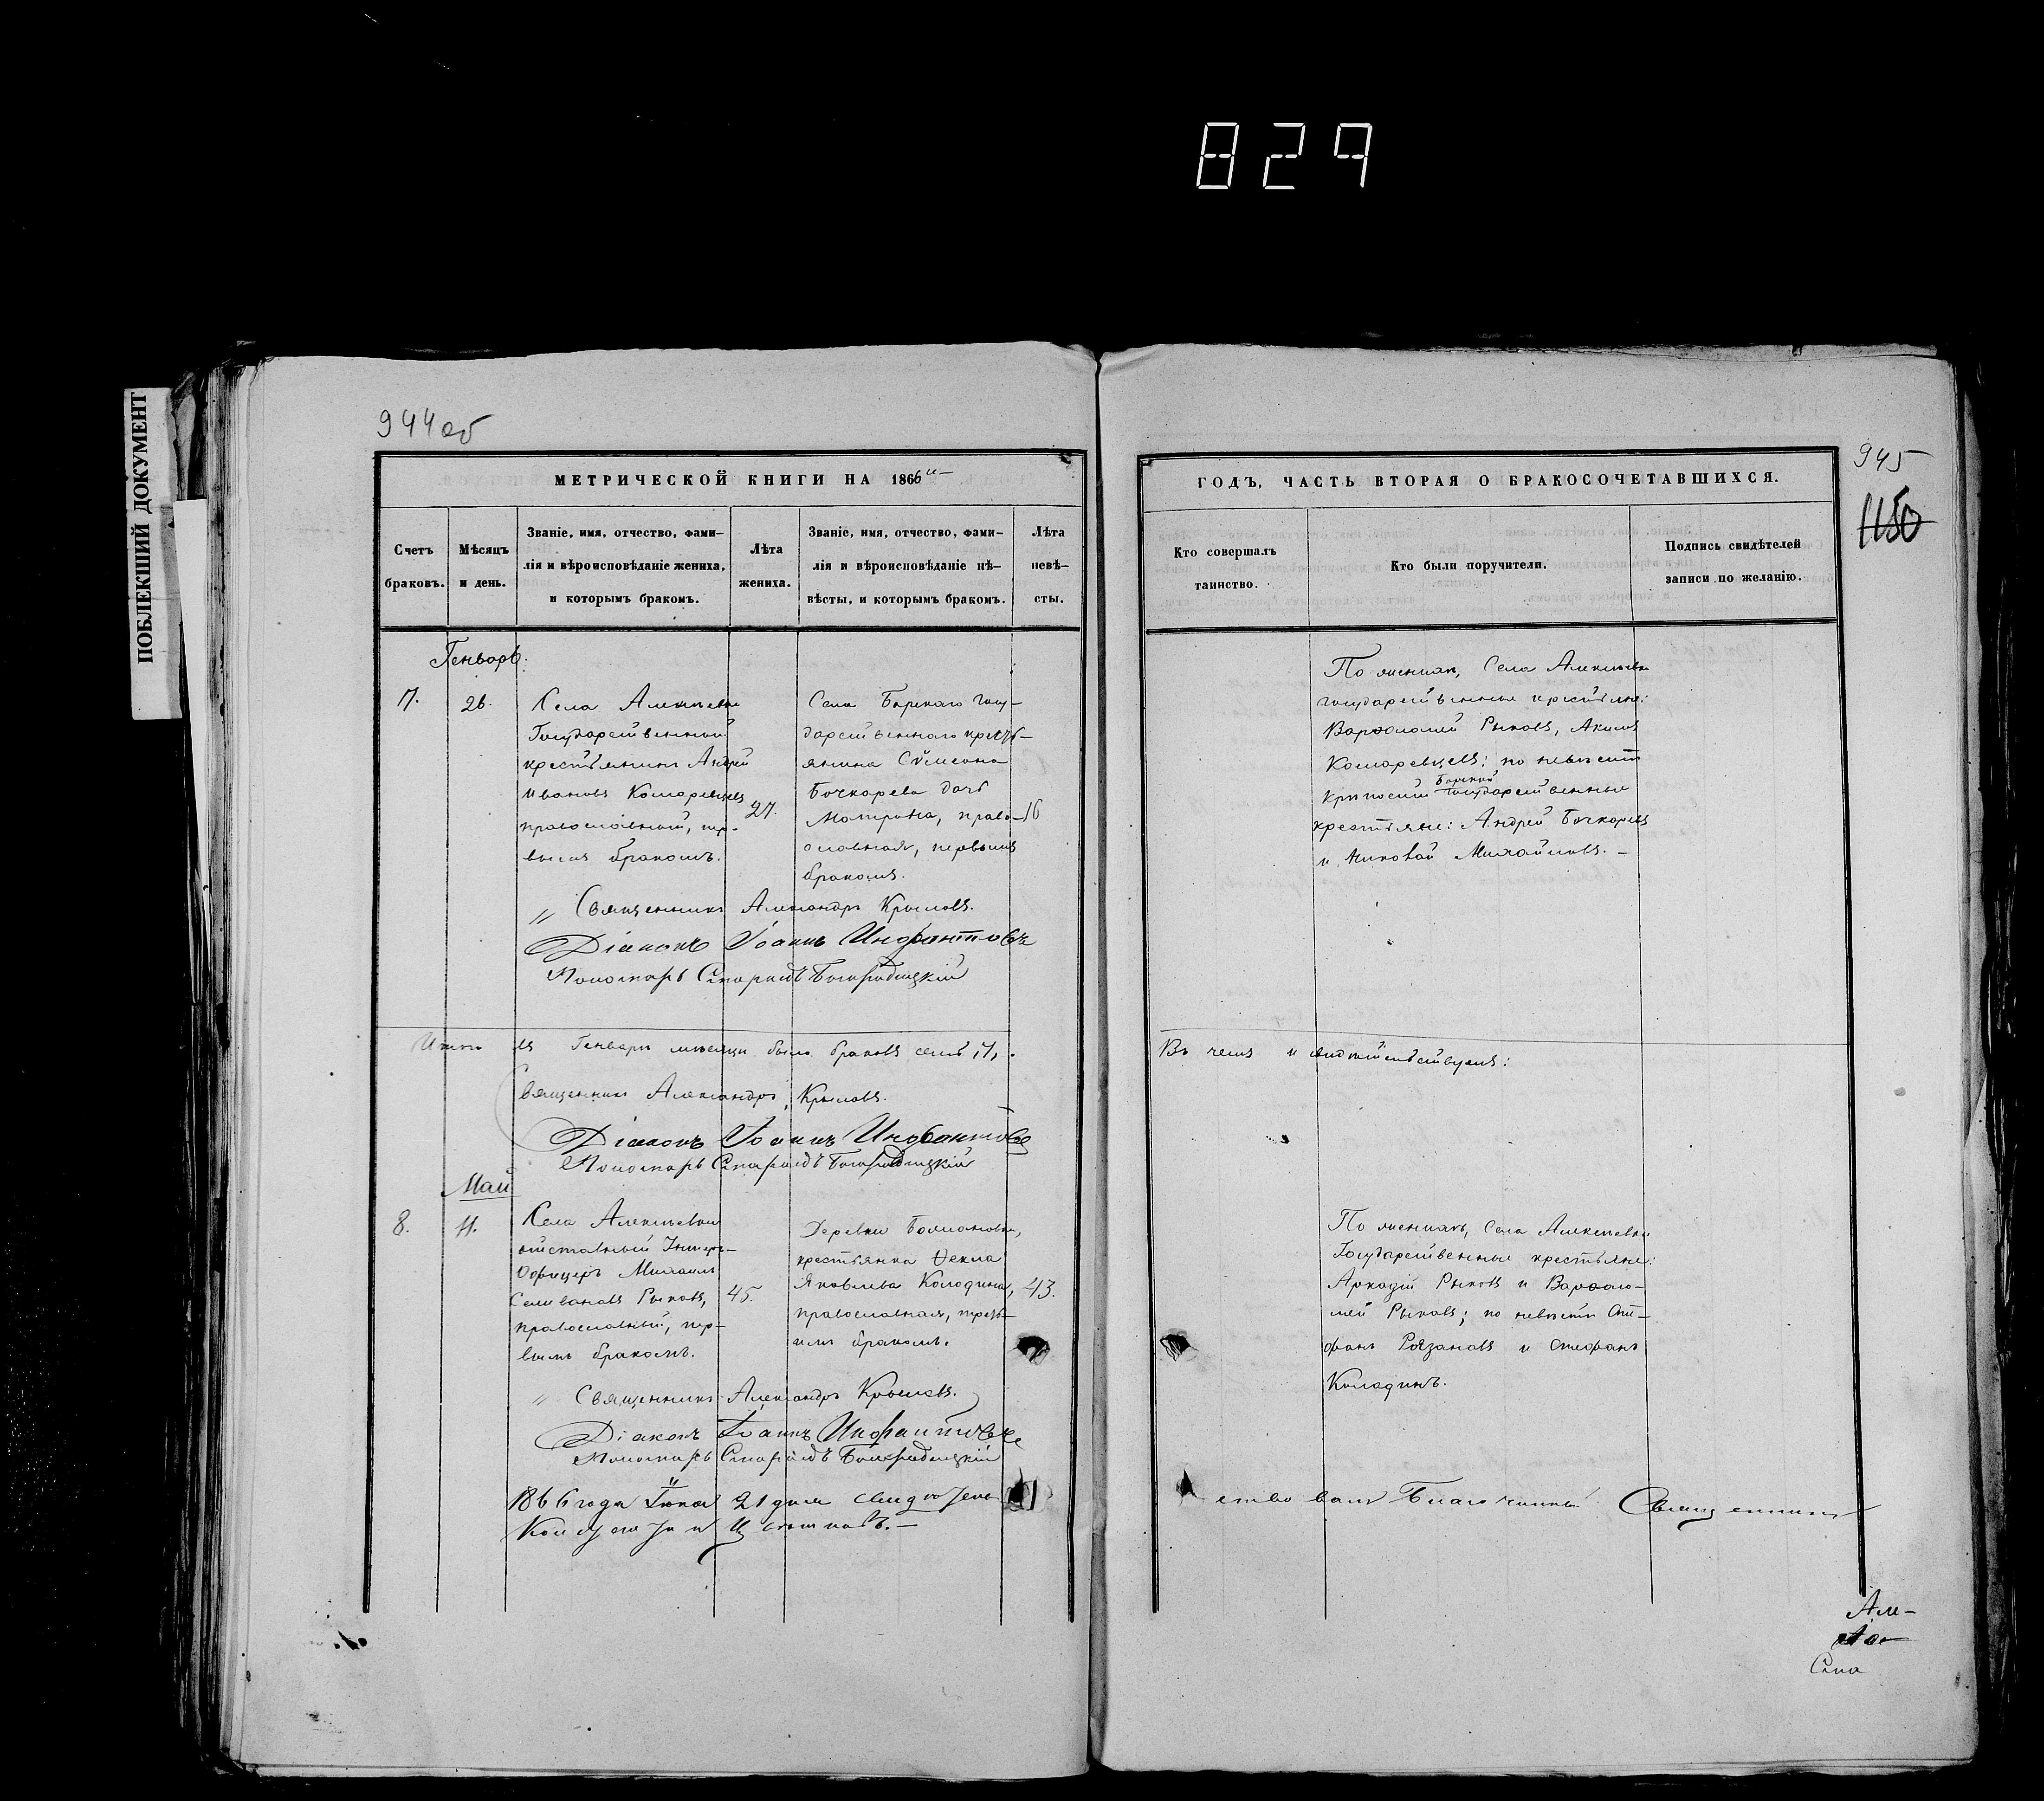 829
ПОБЛЕКШИЙ ДОКУМЕНТ
944об
МЕТРИЧЕСКОЙ КНИГИ НА 1866й
Счетъ браковъ.
Мѣсяцъ и день.
Званіе, имя, отчество, фами-
лія и вѣроисповѣданіе жениха,
и которымъ бракомъ.
Лѣта
жениха.
Званіе, имя, отчество, фами-
лія и вѣроисповѣданіе не-
вѣсты, и которымъ бракомъ.
Лѣта
невѣ-
сты.
Генварь.
7.
26.
Села Алексѣевки
Государственный
крестьянинъ Андрей
Ивановъ Комаревцевъ
православный, пер-
вымъ бракомъ.
27.
Села Борскаго госу-
дарственнаго кресть-
янина Сѵмеона
Бочкарева дочь
Матрона, право-
славная, первымъ
бракомъ.
16
Священникъ Александръ Крыловъ.
Діаконъ Іоаннъ Инфантовъ
Пономарь Спиридъ Богородицкій
Итого въ Генварѣ мѣсяцѣ было браковъ семь, 7,.
Священникъ Александръ Крыловъ.
Діаконъ Іоаннъ Инфантовъ
Пономарь Спиридъ Богородицкій
Май
8.
11.
Села Алексѣевки
отставный Унтеръ-
Офицеръ Михаилъ
Селивановъ Рыковъ,
православный, пер-
вымъ бракомъ.
45.
Деревни
крестьянка Ѳекла
Яковлева Колодина,
православная, треть-
имъ бракомъ.
43.
Священникъ Александръ Крыловъ.
Діаконъ Іоаннъ Инфантовъ
Пономарь Спиридъ Богородицкій
1866 года Іюня 21 дня свидѣтель
945
1150
ГОДЪ, ЧАСТЬ ВТОРАЯ О БРАКОСОЧЕТАВШИХСЯ.
Кто совершалъ
таинство.
Кто были поручители.
Подпись свидѣтелей
записи по желанію.
По женихѣ, Села Алексѣевки
государственные крестьяне:
Варѳоломей Рыковъ, Акимъ
Комаревцевъ; по невѣстѣ
Борской
крѣпости государственные
крестьяне: Андрей Бочкаревъ
и Михайловъ. -
Въ чемъ и свидѣтельствуемъ:
По женихѣ, Села Алексѣевки
Государственные крестьяне:
Аркадій Рыковъ и Варѳоло-
мей Рыковъ; по невѣстѣ Сте-
фанъ Рязановъ и Стефанъ
Колодинъ.
ствовалъ Благочинный Священникъ
Ал-
Спа